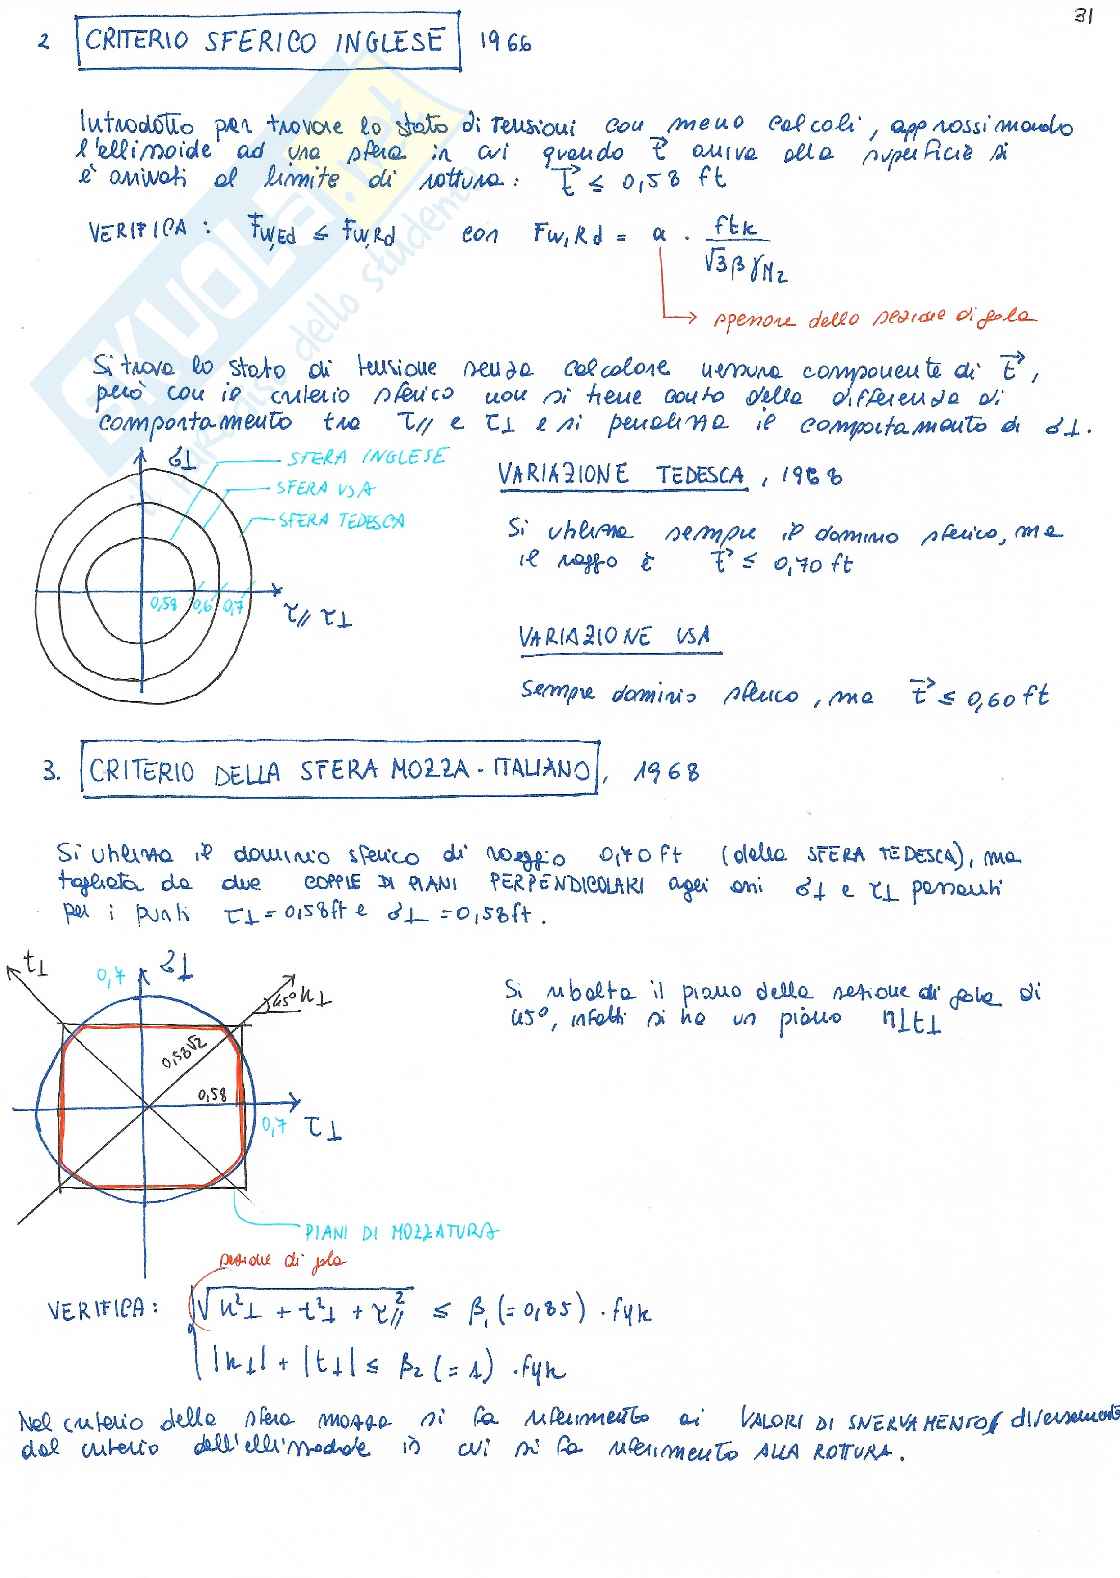 31
2 CRITERIO SFERICO INGLESE 1966
Introdotto per trovare lo stato di tensioni con meno calcoli, approssimando
l'ellissoide ad una sfera in cui quando t⃗ arriva alla superficie si
è arrivati al limite di rottura: t⃗ ≤ 0,58 ft
VERIFICA: Fw,Ed ≤ Fw,Rd con Fw,Rd = a · ftk / √3 β γM2
spessore della sezione di gola
Si trova lo stato di tensione senza calcolare nessuna componente di t⃗,
però con il criterio sferico non si tiene conto della differenza di
comportamento tra τ// e τ⊥ e si penalizza il comportamento di σ⊥.
σ⊥
SFERA INGLESE
SFERA USA
SFERA TEDESCA
0,58 0,6 0,7
τ// τ⊥
VARIAZIONE TEDESCA, 1968
Si utilizza sempre il dominio sferico, ma
il raggio è t⃗ ≤ 0,70 ft
VARIAZIONE USA
Sempre dominio sferico, ma t⃗ ≤ 0,60 ft
3. CRITERIO DELLA SFERA MOZZA - ITALIANO, 1968
Si utilizza il dominio sferico di raggio 0,70 ft (della SFERA TEDESCA), ma
tagliata da due COPPIE DI PIANI PERPENDICOLARI agli assi σ⊥ e τ⊥ passanti
per i punti τ⊥ = 0,58 ft e σ⊥ = 0,58 ft.
t⊥
0,7
σ⊥
45° n⊥
0,58√2
0,58
0,7 τ⊥
PIANI DI MOZZATURA
Si ribalta il piano della sezione di gola di
45°, infatti si ha un piano n⊥t⊥
sezione di gola
VERIFICA: √n²⊥ + t²⊥ + τ²// ≤ β1 (= 0,85) · fyk
|n⊥| + |t⊥| ≤ β2 (= 1) · fyk
Nel criterio della sfera mozza si fa riferimento ai VALORI DI SNERVAMENTO, diversamente
dal criterio dell'ellissoide in cui si fa riferimento ALLA ROTTURA.
SKUOLA.net
dello studente